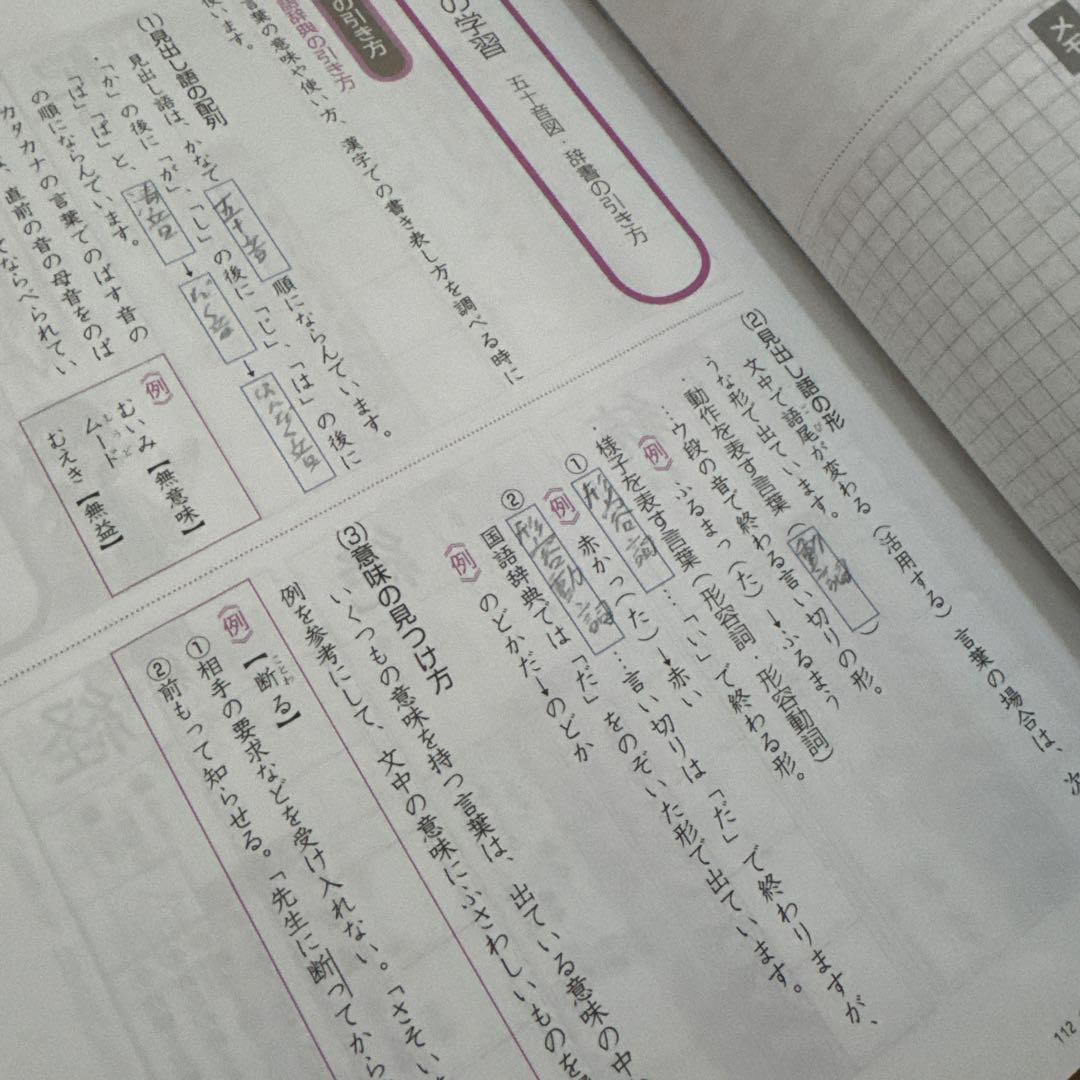 メモ
の学習 五十音図・辞書の引き方
の引き方
語辞典の引き方
言葉の意味や使い方、漢字での書き表し方を調べる時に
使います。
(1)見出し語の配列
見出し語は、かなで五十音順にならんでいます。
・「か」の後に「が」、「し」の後に「じ」、「は」の後に
「ば」「ぱ」と、清音→だく音→はんだく音
の順にならんでいます。
カタカナの言葉でのばす音の
、直前の音の母音をのば
てならべられてい
《例》
むいみ【無意味】
ムード
むうど
むえき【無益】
(2)見出し語の形
文中で語尾が変わる(活用する)言葉の場合は、次
ごび
うな形で出ています。
・動作を表す言葉(動詞)
…ウ段の音で終わる言い切りの形。
《例》ふるまっ(た)→ふるまう
・様子を表す言葉(形容詞・形容動詞)
①形容詞…「い」で終わる形。
《例》赤かっ(た)→赤い
②形容動詞…言い切りは「だ」で終わりますが、
国語辞典では「だ」をのぞいた形で出ています。
《例》のどかだ→のどか
(3)意味の見つけ方
いくつもの意味を持つ言葉は、出ている意味の中
例を参考にして、文中の意味にふさわしいものを
《例》【断る】
ことわ
①相手の要求などを受け入れない。「さそい
②前もって知らせる。「先生に断ってから
112